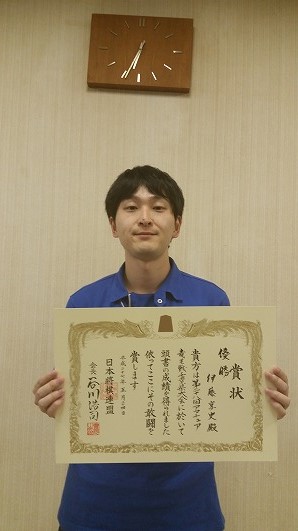 賞状
優勝
伊藤京史殿
貴方は第
アマチュア
竜王戦
大会に於いて
頭書の成績を得られました
依ってここにその敢闘を
賞します
平成二十七年五月二十四日
日本将棋連盟
会長
谷川浩司